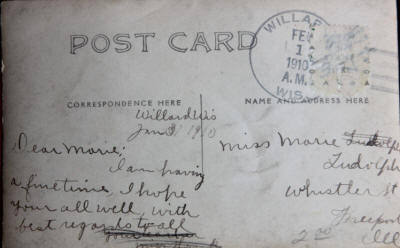 POST CARD
WILLARD
FEB
1
1910
A.M.
WIS.
CORRESPONDENCE HERE
NAME AND ADDRESS HERE
Willard Wis
Jan 31 1910
Dear Marie:
I am having
a fine time, I hope
your all well, with
best regards to all
Miss Marie
Ludolph
Whistler St
Freeport
Ill